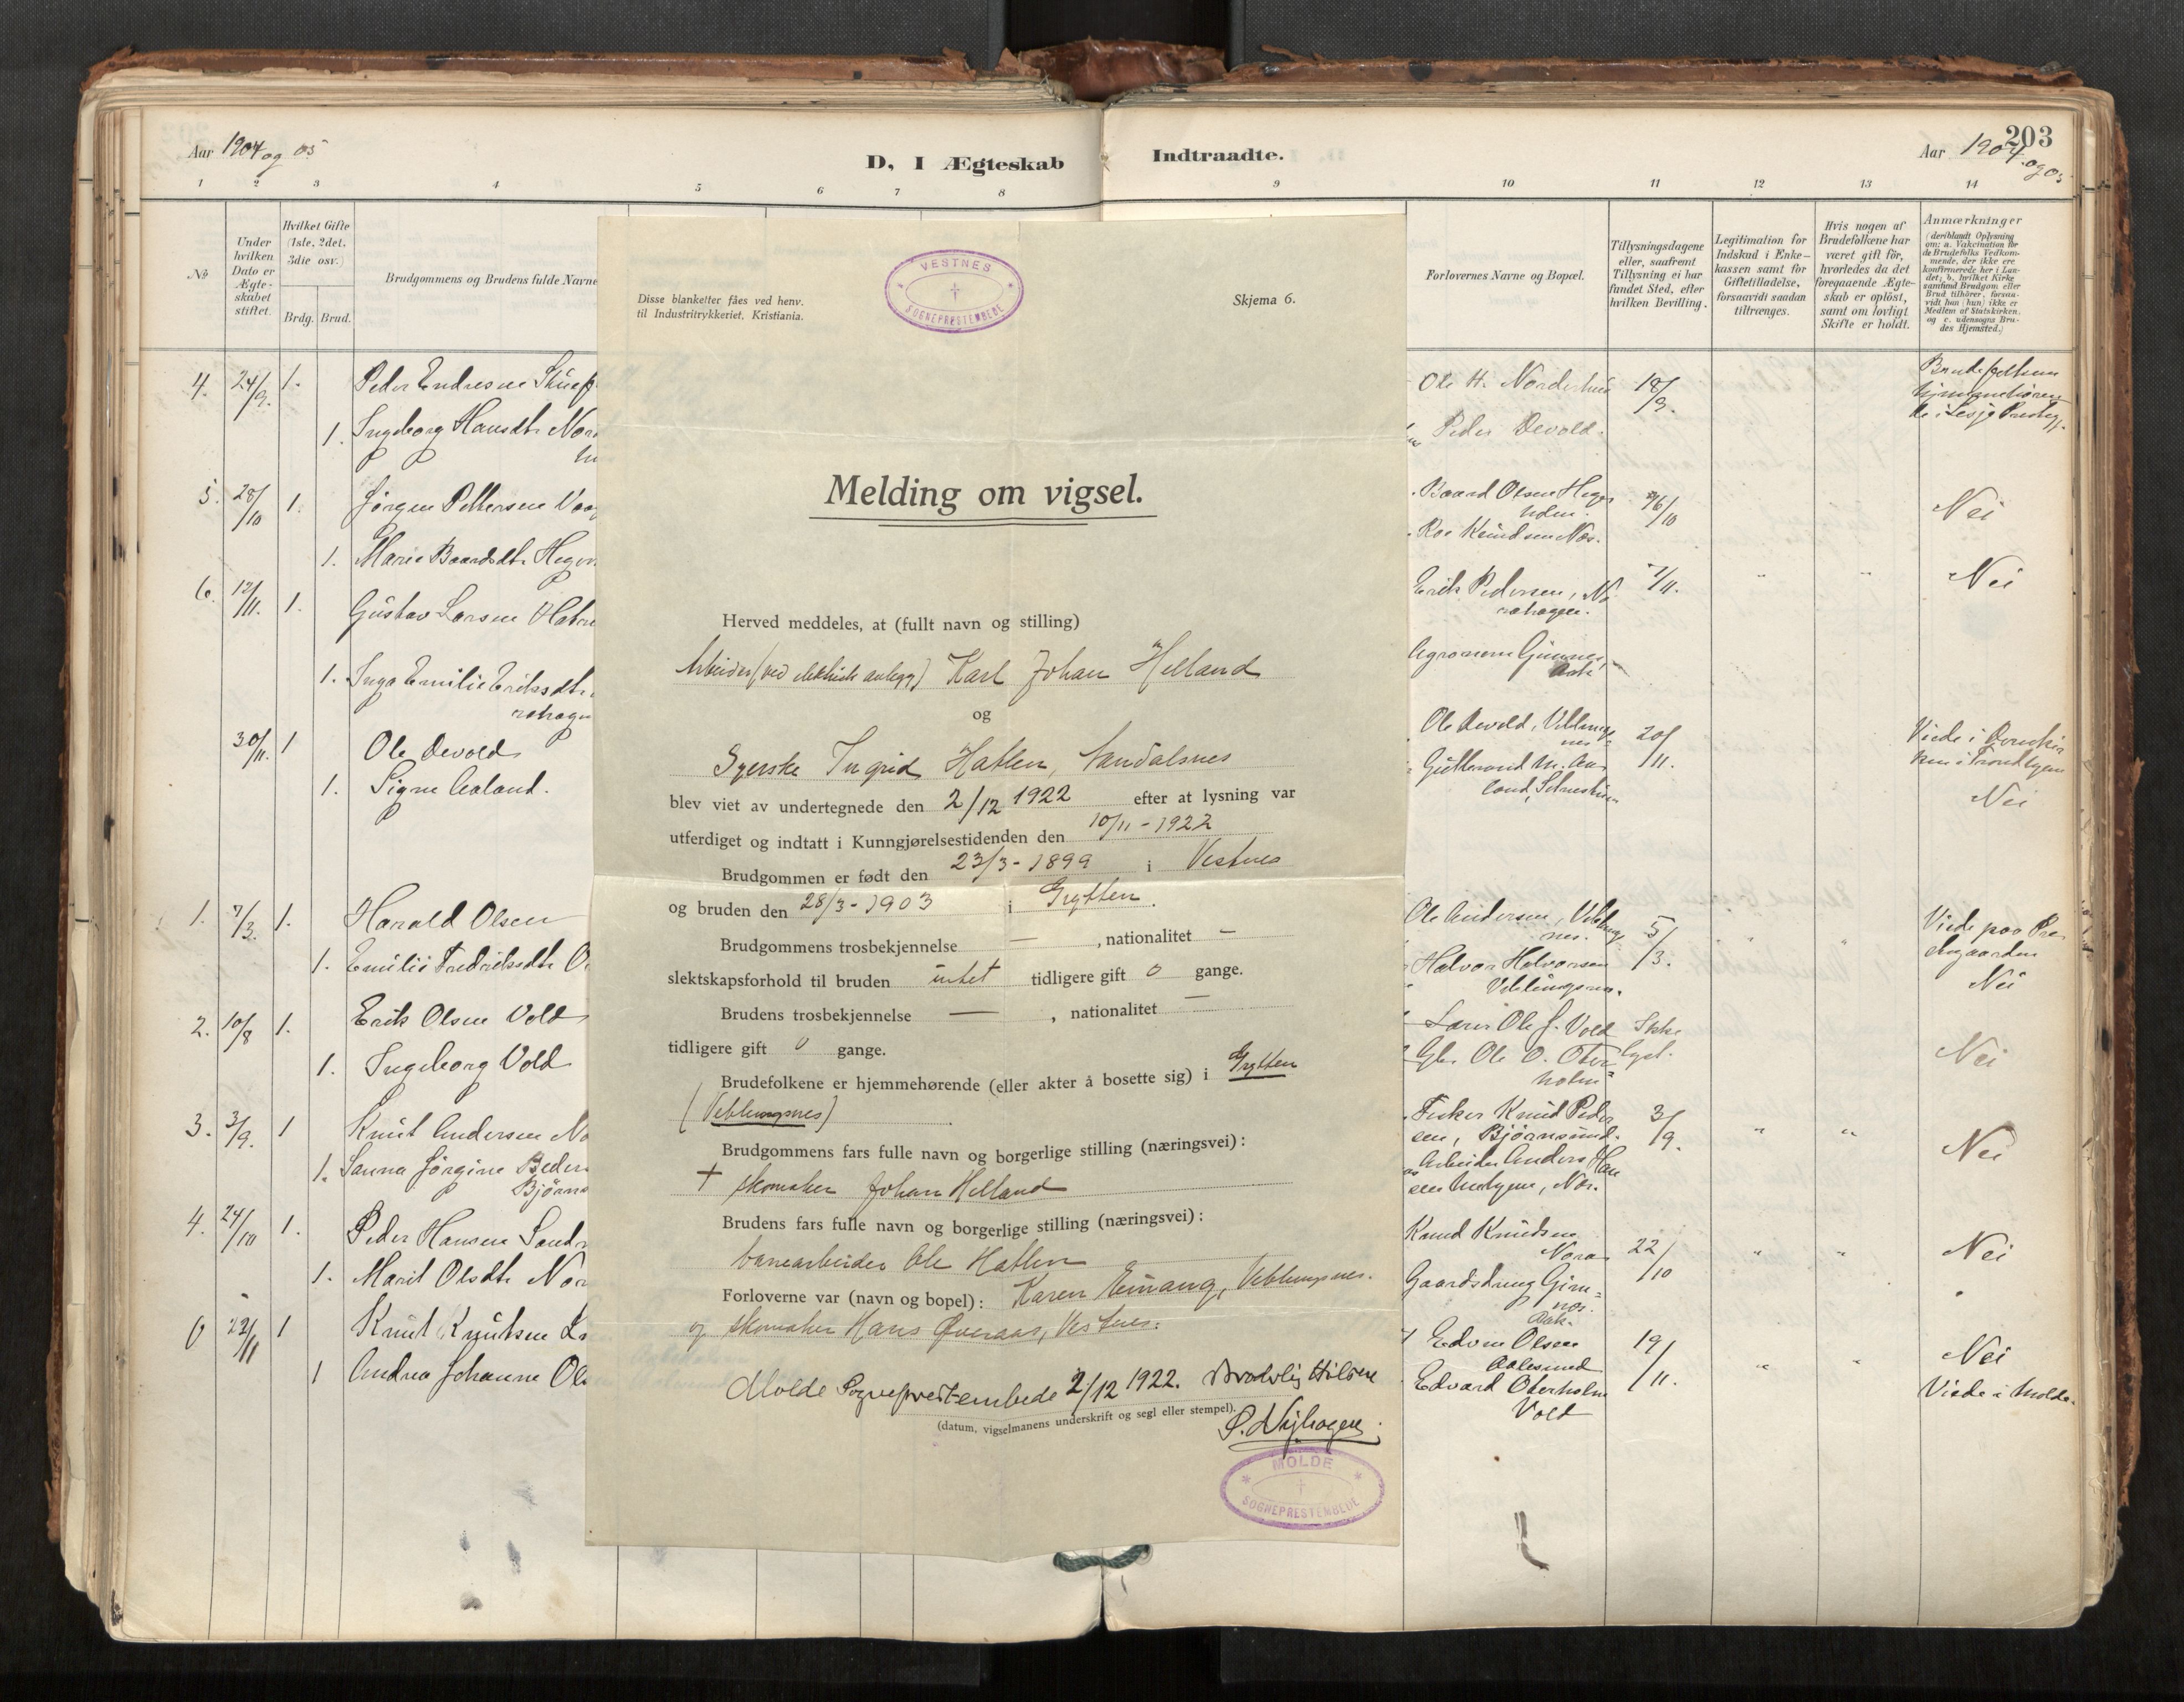 Aar 1904 og 05
D, I Ægteskab
Indtraadte.
203
Aar 1904. og 05
1 2 3 4 5 6 7 8 9 10 11 12 13 14
No
Under hvilken Dato er Ægte-skabet stiftet.
Hvilket Gifte (1ste, 2det, 3die osv.)
Brdg. Brud.
Brudgommens og Brudens fulde Navne
Forlovernes Navne og Bopæl.
Tillysningsdagene eller, saafremt Tillysning ei har fundet Sted, efter hvilken Bevilling.
Legitimation for Indskud i Enke-kassen samt for Giftetilladelse, forsaavidt saadan tiltrænges.
Hvis nogen af Brudefolkene har været gift før, hvorledes da det foregaaende Ægte-skab er opløst, samt om lovligt Skifte er holdt.
Anmærkninger
(deriblandt Oplysning om: a. Vakcination for de Brudefolks Vedkom-mende, der ikke ere konfirmerede her i Lan-det; b. hvilket Kirke-samfund Brudgom eller Brud tilhører, forsaa-vidt han (hun) ikke er Medlem af Statskirken. og c. udensogns Bru-des Hjemsted.)
4. 24/9. 1. Peder Endresen
1. Ingeborg Hansdtr Nor
5. 28/10 1. Jørgen Pettersen
1. Marie Baardsdtr Hegen
6. 12/11. 1. Gustav Larsen Haten
1. Inga Emilie Eriksdtr.
rahagen
30/11. 1 Ole Devold
1. Signe Aaland.
1. 7/3. 1. Harald Olsen
1. Emilie Fredriksdtr O
2. 10/8 1. Erik Olsen Vold
1. Ingeborg Vold
3. 3/9. 1 Knut Andersen No
1. Sanna Jørgine Peders
Bjørns
4. 24/10 1. Peder Hansen Sand
1. Marit Olsdtr Nor
22/11 1 Knut Knutsen
1 Andrea Johanne Ols
VESTNES
SOGNEPRESTEMBEDE
Disse blanketter fåes ved henv.
til Industritrykkeriet, Kristiania.
Skjema 6.
Melding om vigsel.
Herved meddeles, at (fullt navn og stilling)
Arbeider (ved elektriske anlegg) Karl Johan Helland
og
Syerske Ingrid Hatlen, Aandalsnes
blev viet av undertegnede den 2/12 1922 efter at lysning var
utferdiget og indtatt i Kunngjørelsestidenden den 10/11 - 1922
Brudgommen er født den 23/3 - 1899 i Vestnes
og bruden den 28/3 - 1903 i Grytten.
Brudgommens trosbekjennelse — , nationalitet —
slektskapsforhold til bruden intet tidligere gift 0 gange.
Brudens trosbekjennelse — , nationalitet —
tidligere gift 0 gange.
Brudefolkene er hjemmehørende (eller akter å bosette sig) i Grytten
(Veblungsnes)
Brudgommens fars fulle navn og borgerlige stilling (næringsvei):
+ skomaker Johan Helland
Brudens fars fulle navn og borgerlige stilling (næringsvei):
banearbeider Ole Hatlen
Forloverne var (navn og bopel): Karen Einang, Veblungsnes.
og skomaker Hans Øveraas, Vestnes.
Molde Sogneprestembede 2/12 1922.
(datum, vigselmanens underskrift og segl eller stempel).
MOLDE
SOGNEPRESTEMBEDE
Ole H. Norderhus 18/9.
Peder Devold.
Brudefolkene hjemmehørende i Lesje Prestegj.
Baard Olsen Hegerholm. 16/10 Nei
Roe Knudsen Næs.
Erik Pedersen, 7/11. " " Nei
rahagen.
Ole Devold, Veblungsnes 20/11.
Viede i Domkirken i Trondhjem
Nei
Ole Andersen, Veblungsnes. 5/3. " "
Halvor Halvorsen
Veblungsnes.
Viede paa Prestegaarden
Nei
Lars Ole J. Vold Ikke lyst.
Gbr. Ole O. Oterholm Nei
Fisker Knud Pedersen, Bjørnsund. 3/9. " " Nei
Arbeider Anders Han
Knud Knudsen 22/10 " " Nei
Gaardsdreng
Edvin Olsen 19/11. " " Nei
Aalesund
Edvard Oterholm Viede i Molde.
Vold